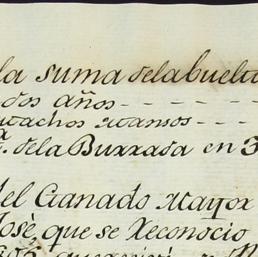 la suma de la buelta
dos años - - - -
machos mansos - - -
de la Burrada en 3
del Ganado Mayor
José que se Reconocio